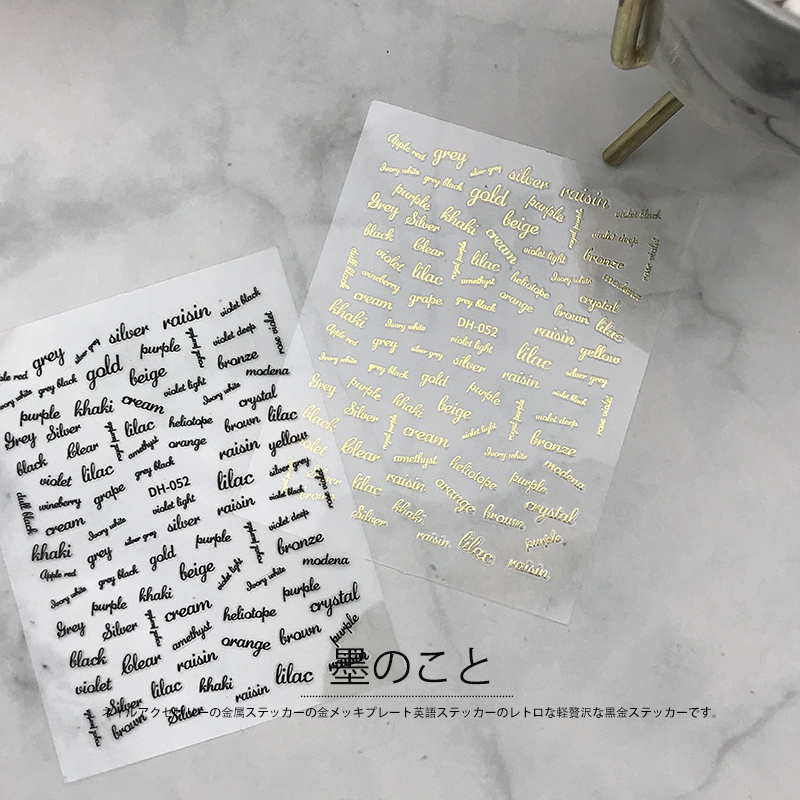 Apple red grey silver grey silver raisin violet black
Ivory white grey black gold purple violet deep rose violet
purple khaki beige royal purple bronze
Grey Silver cream violet light modena
black Clear royal purple lilac heliotope Ivory white crystal
dull black violet lilac amethyst orange brown lilac
wineberry grape grey black raisin yellow
cream Ivory white DH-052 lilac silver grey
khaki grey violet light raisin violet black rose violet
Apple red silver grey silver violet deep
Ivory white grey black gold purple royal purple bronze
Grey purple khaki beige violet light Ivory white modena
black Silver cream heliotope purple crystal
violet Clear amethyst orange brown purple
Silver lilac raisin lilac
brown Silver khaki raisin lilac raisin
red grey silver grey silver raisin violet black
grey black gold purple royal purple violet deep rose violet
purple khaki beige violet light bronze modena
Grey Silver cream Ivory white crystal
black Clear lilac heliotope brown lilac
violet lilac amethyst orange raisin yellow
dull black wineberry grape grey black lilac silver grey
cream DH-052 violet light raisin violet black
khaki Ivory white silver grey silver violet deep
Apple red grey gold purple royal purple bronze
Ivory white grey black beige violet light Ivory white modena
purple khaki purple crystal
Grey Silver cream heliotope purple
black Clear amethyst orange brown
violet lilac raisin lilac
Silver khaki raisin
royal purple brown Silver
墨のこと
ネイルアクセサリーの金属ステッカーの金メッキプレート英語ステッカーのレトロな軽贅沢な黒金ステッカーです。